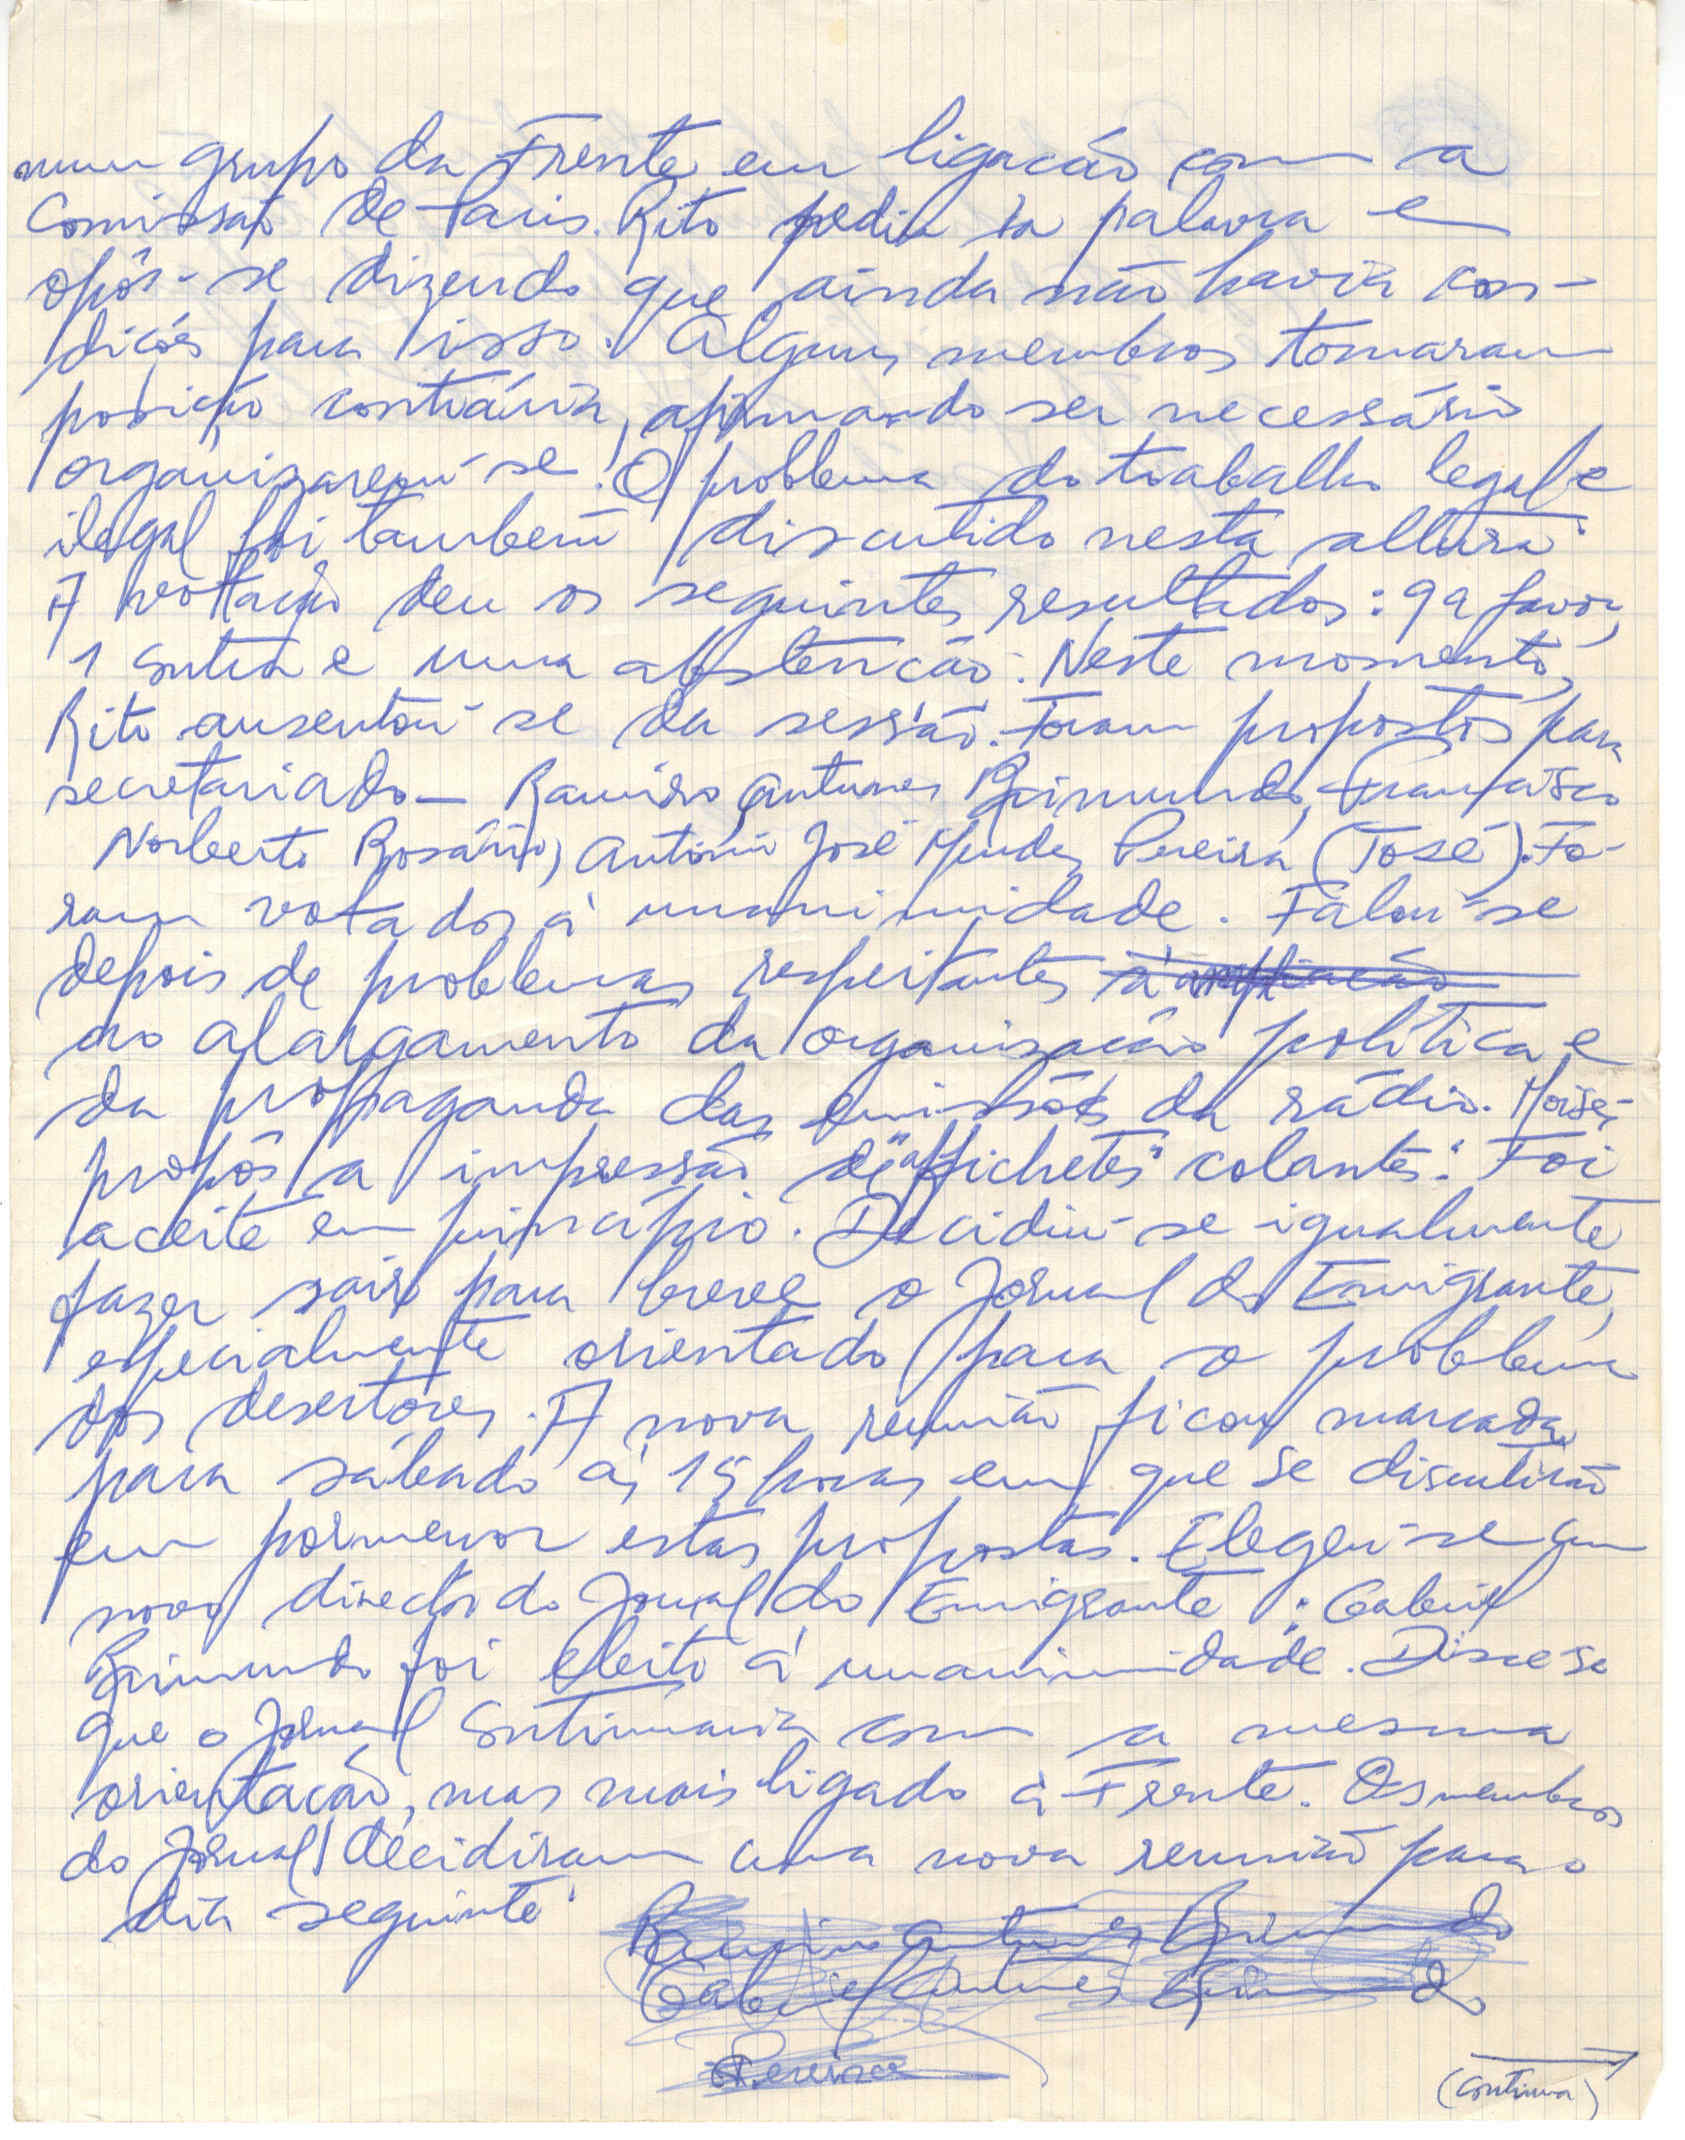 num grupo da Frente em ligação com a
Comissão de Paris. Rito pediu a palavra e
opôs-se dizendo que ainda não havia con-
dições para isso. Alguns membros tomaram
posição contrária, afirmando ser necessário
organizarem-se. O problema do trabalho legal e
ilegal foi também discutido nesta altura.
A votação deu os seguintes resultados: 9 a favor,
1 contra e uma abstenção. Neste momento,
Rito ausentou-se da sessão. Foram propostos para
secretariado — Ramiro Antunes Raimundo, Francisco
Norberto Rosário, António José Mendes Pereira (José). Fo-
ram votados à unanimidade. Falou-se
depois de problemas respeitantes à ampliação
ao alargamento da organização política e
da propaganda das emissões da rádio. Moisés
propôs a impressão de "affichetes" colantes. Foi
aceite em princípio. Decidiu-se igualmente
fazer sair para breve o Jornal do Emigrante,
especialmente orientado para o problema
dos desertores. A nova reunião ficou marcada
para sábado às 15 horas em que se discutirão
em pormenor estas propostas. Elegeu-se um
novo director do Jornal do Emigrante: Gabriel
Raimundo foi eleito à unanimidade. Disse-se
que o Jornal continuaria com a mesma
orientação, mas mais ligado à Frente. Os membros
do Jornal decidiram uma nova reunião para o
dia seguinte.
Ramiro Antunes Raimundo
Gabriel Antunes Raimundo
Pereira
(continua)